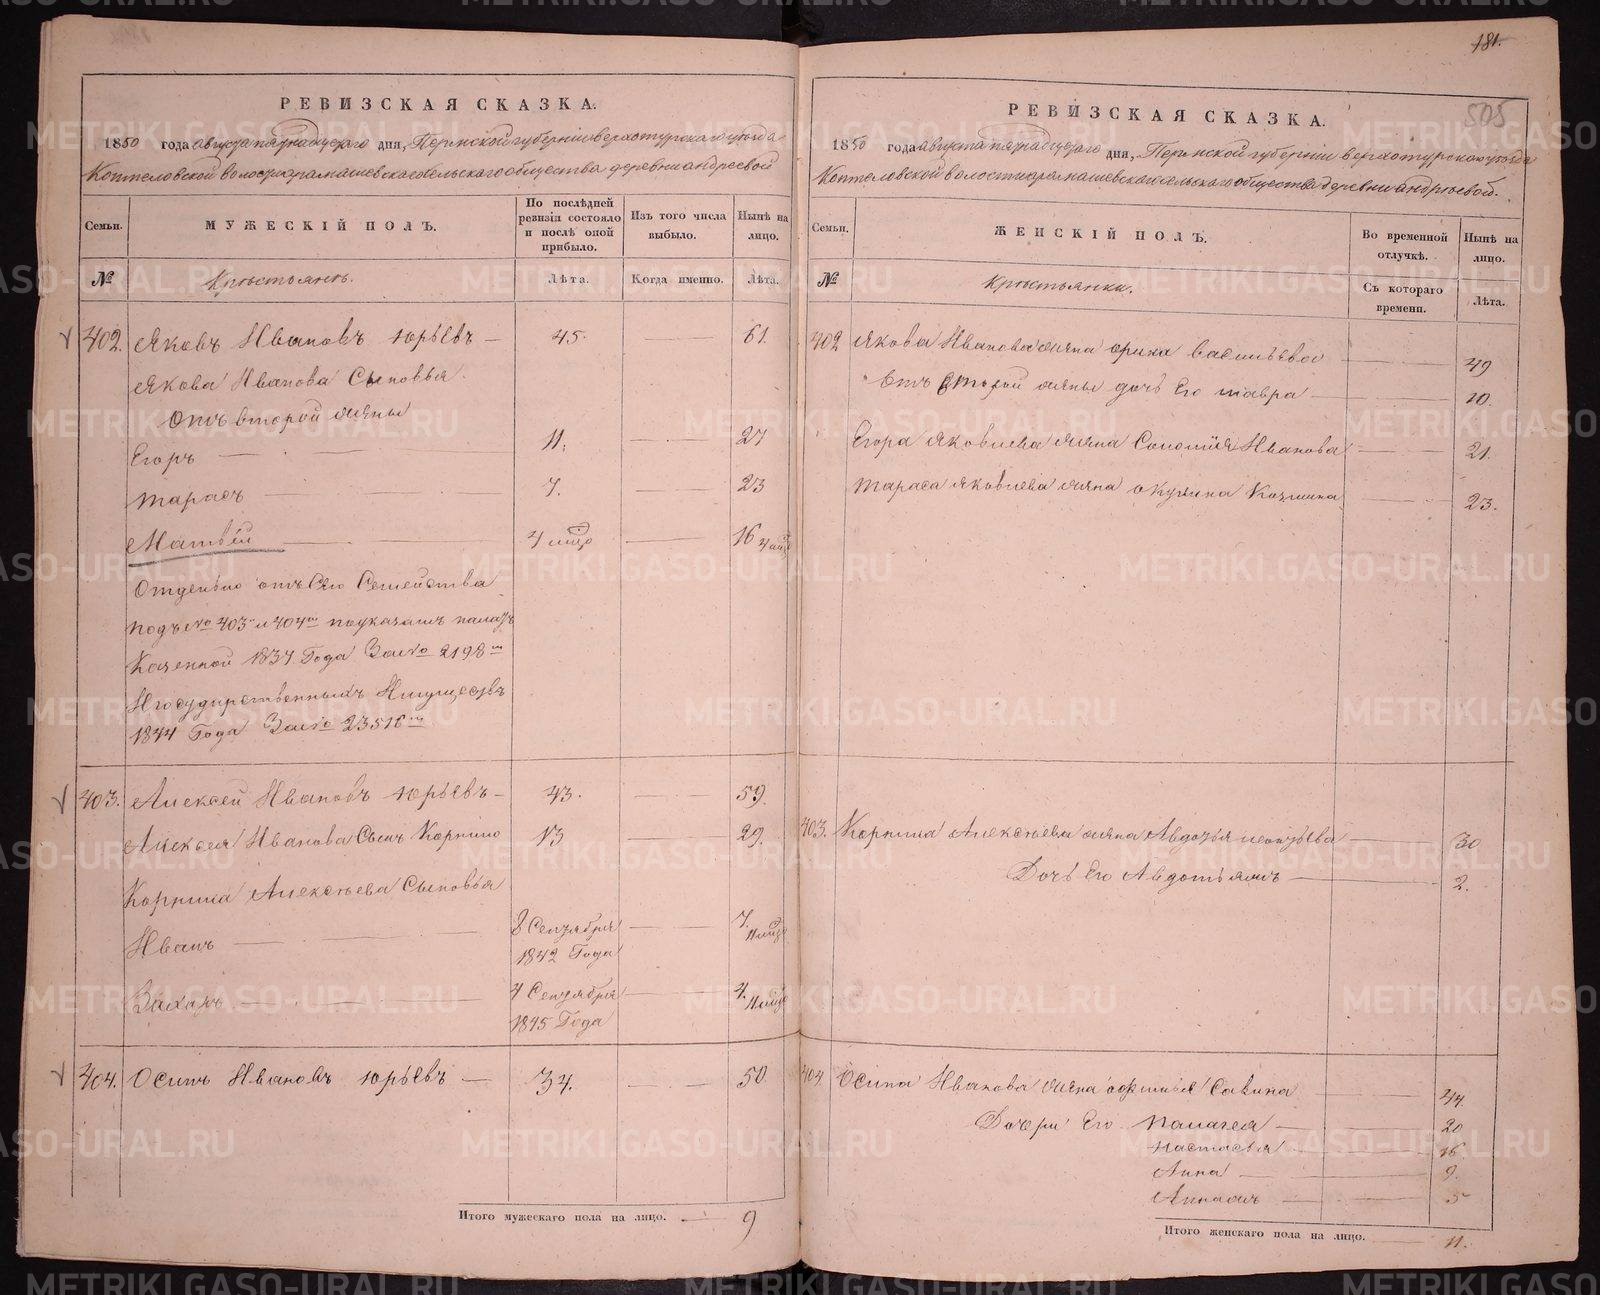 181.
505
РЕВИЗСКАЯ СКАЗКА.
1850 года августа пятнадцатаго дня, Пермской губерніи верхотурскаго уезда
Коптеловской волости арамашевскаго сельскаго общества деревни андреевой
Семьи. МУЖЕСКІЙ ПОЛЪ. По послѣдней ревизіи состояло и послѣ оной прибыло. Изъ того числа выбыло. Нынѣ на лицо.
№ Крестьянъ. Лѣта. Когда именно. Лѣта.
402. Яковъ Ивановъ юрьевъ — 45. 61.
Якова Иванова Сыновья
Отъ второй жены
Егоръ 11. 27
тарасъ 7. 23
Матвѣй 16
Отдельно отъ Сего Семейства
подъ № 403 и 404 показаны палаты
Казенной 1837 Года За № 2198
И государственныхъ Имуществъ
1844 Года За № 23516
403. Алексей Ивановъ юрьевъ — 43. 59.
Алексея Иванова Сынъ Корнило 13 29.
Корнила Алексеева Сыновья
Иванъ 8 Сентября 7.
1842 Года
Захаръ 4 Сентября 4.
1845 Года
404. Осипъ Ивановъ юрьевъ — 34. 50.
Итого мужескаго пола на лицо. — 9
РЕВИЗСКАЯ СКАЗКА.
1850 года августа пятнадцатаго дня, Пермской губерніи верхотурскаго уезда
Коптеловской волости арамашевскаго сельскаго общества деревни андреевой.
Семьи. ЖЕНСКІЙ ПОЛЪ. Во временной отлучкѣ. Нынѣ на лицо.
№ Крестьянки. Съ котораго времени. Лѣта.
402 Якова Иванова жена Арина васильева 49
Отъ второй жены дочь Его мавра 10.
Егора Яковлева жена Соломия Иванова 21.
тараса Яковлева жена окулина Козмина 23.
403. Корнила Алексеева жена Авдотья 30
Дочь Его Авдотья 2.
404 Осипа Иванова жена Савина 44.
Дочери Его Палагея — 20
настасья 16.
Анна 9.
Анна 5
Итого женскаго пола на лицо. 11.
METRIKI.GASO-URAL.RU